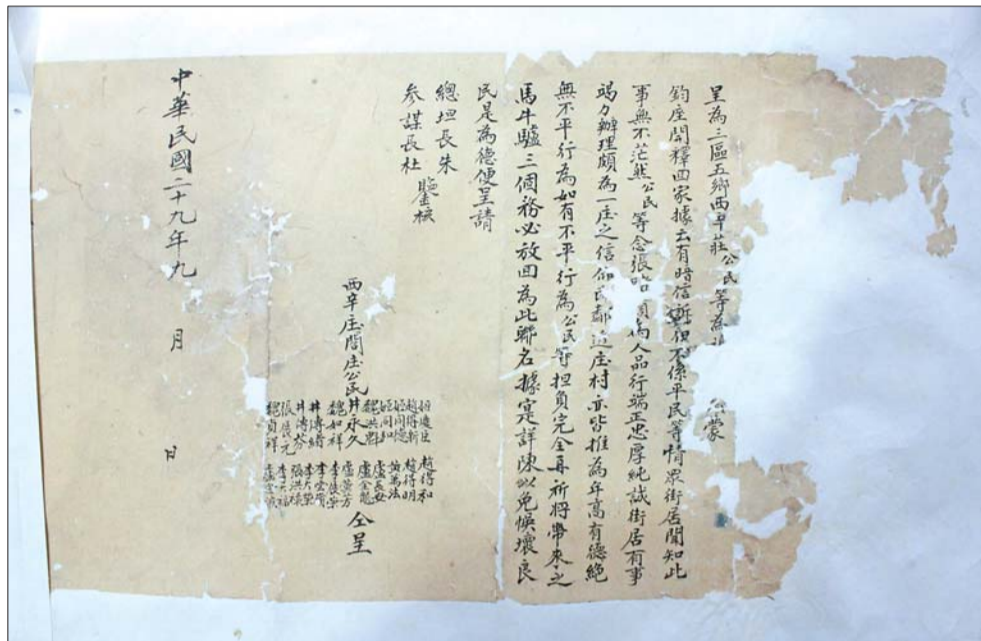 呈為三區五鄉西辛莊公民等為 蒙
鈞座開釋回家據云有暗信 但不係平民等情眾街居聞知此
事無不茫然公民等念張 為人品行端正忠厚純誠街居有事
竭力辦理頗為一庄之信仰 庄村亦皆推為年高有德絕
無不平行為如有不平行為公民等担負完全再祈將帶來之
馬牛驢三個務必放回為此聯名據寔詳陳以免悞壞良
民是為德便呈請
總垣長朱
參謀長杜 鑒核
西辛庄閤庄公民
趙得新
姬同德
姬同和
魏洪恩
井永久
魏如祥
井濤緒
井濤芬
張長元
魏貞祥
趙得和
趙得明
黃萬法
盧長安
盧金
盧黃方
李俊榮
李洪福
仝呈
中華民國二十九年九 月 日